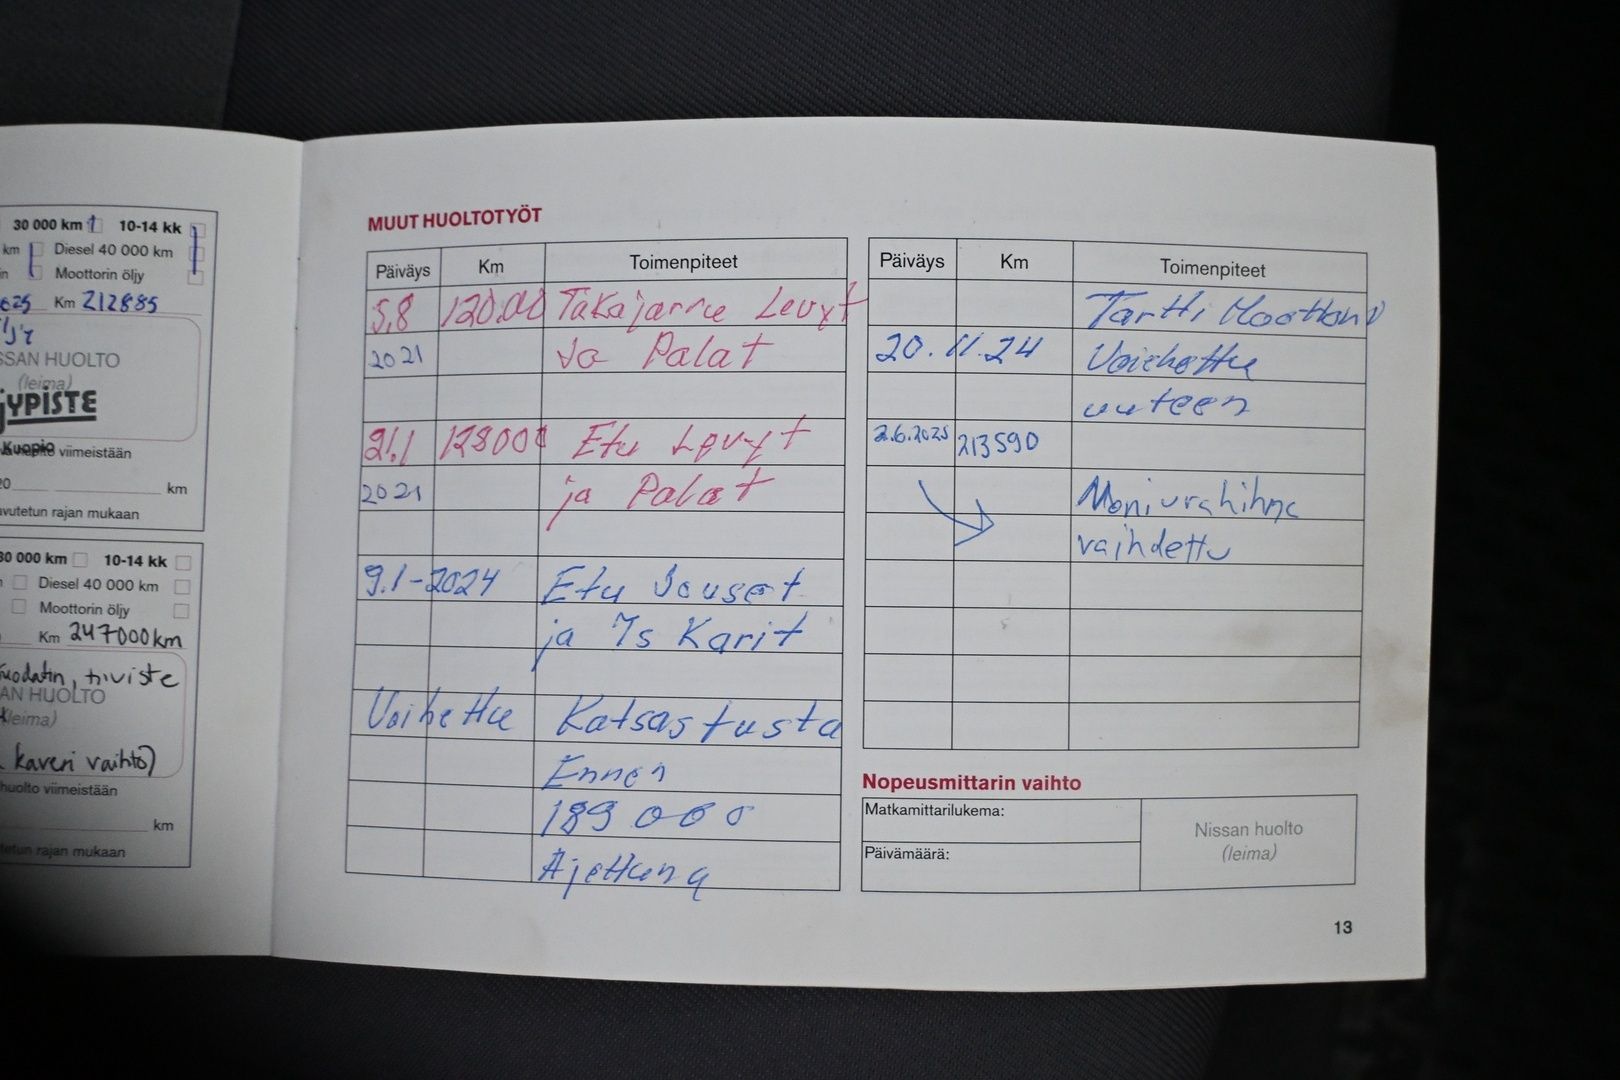 30 000 km 10-14 kk
km Diesel 40 000 km
Moottorin öljy
Km 212885
SSAN HUOLTO
(leima)
YPISTE
Kuopio
viimeistään
km
avutetun rajan mukaan
30 000 km 10-14 kk
Diesel 40 000 km
Moottorin öljy
Km 247000km
tiiviste
AN HUOLTO
(leima)
kaveri vaihto)
huolto viimeistään
km
tetun rajan mukaan
MUUT HUOLTOTYÖT
Päiväys Km Toimenpiteet
5.8 Takajarru Levyt
2021 Ja Palat
21.1 Etu Levyt
2021 ja Palat
9.1-2024 Etu Jouset
ja Is Karit
Vaihettu Katsastusta
Ennen
189 000
Ajettuna
Päiväys Km Toimenpiteet
Tartti Moottori
20.11.24 Vaiehettu
uuteen
2.6.2025 213590
Moniurahihna
vaihdettu
Nopeusmittarin vaihto
Matkamittarilukema:
Päivämäärä:
Nissan huolto
(leima)
13